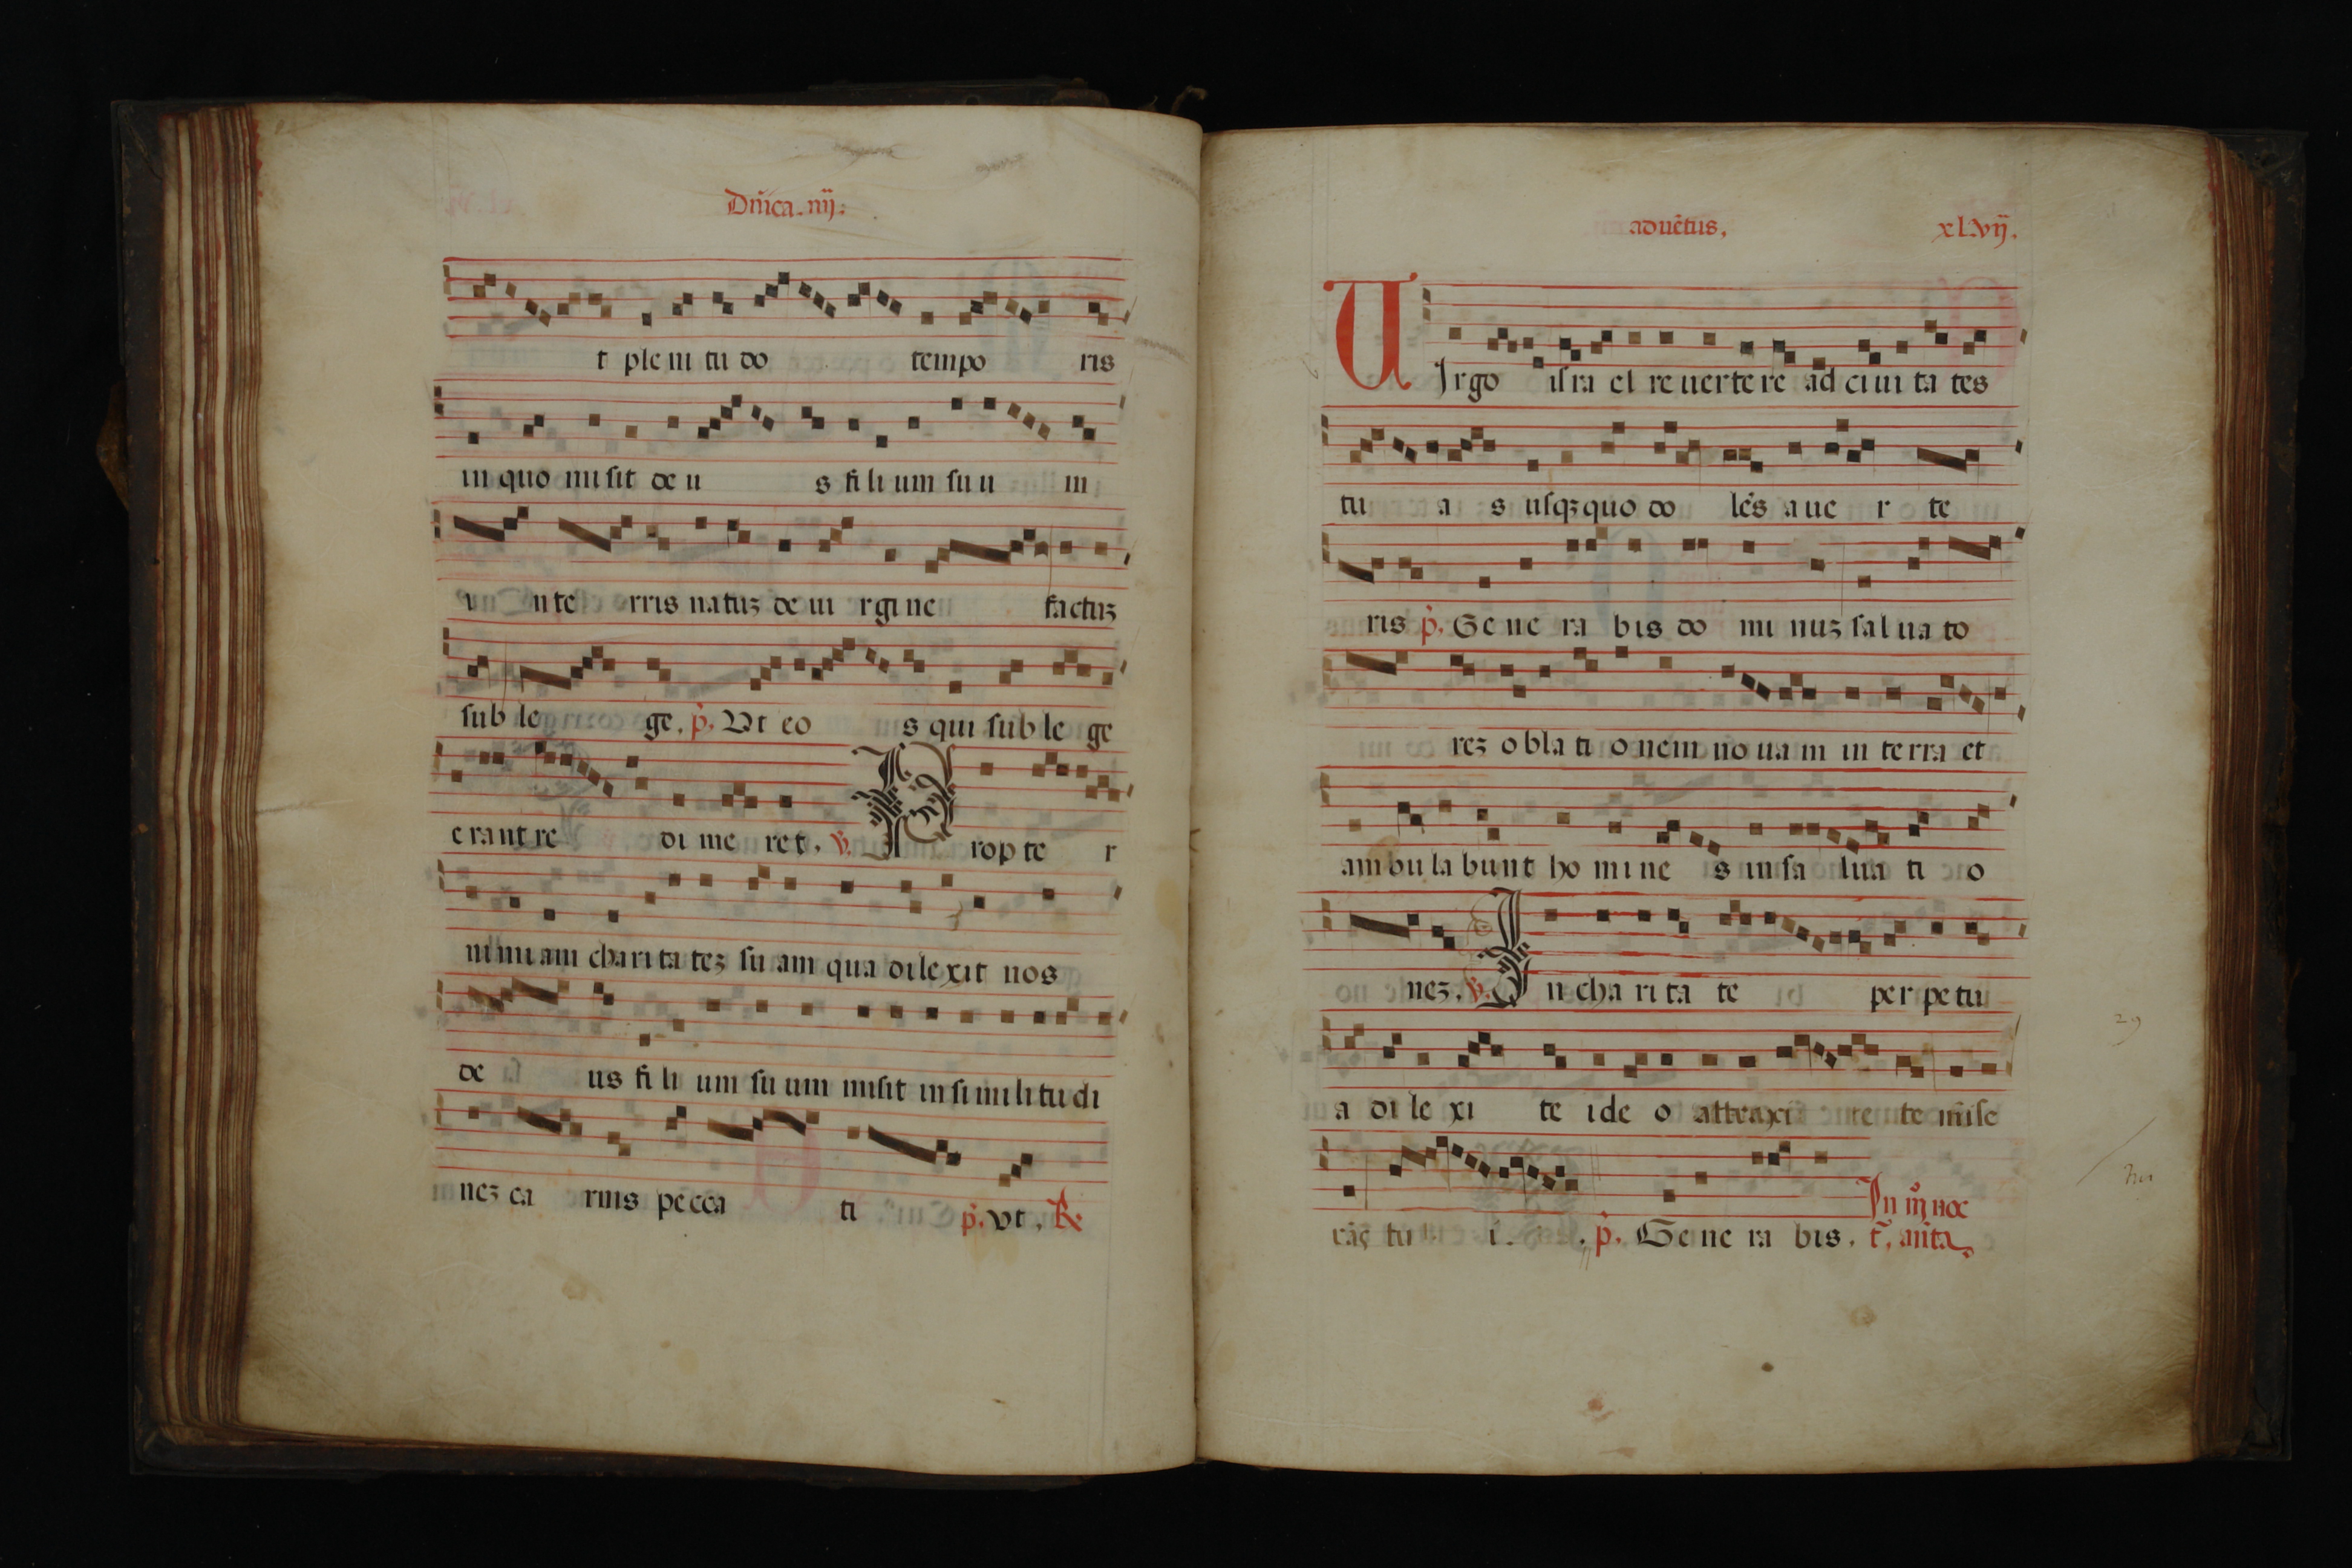 Dñica. iiij:
t ple ni tu do tempo ris
in quo mi sit de u s fi li um su u m
i n te rris natuʒ de ui rgi ne factuʒ
sub le ge. p̃. Ut eo s qui sub le ge
e rant re di me re t. ꝟ. P rop te r
ni mi am chari ta teʒ su am qua di le xit nos
de us fi li um su um misit in si mi li tu di
neʒ ca rnis pe cca ti p̃. ut. ℟
aduẽtus. xl.vij.
U Irgo isra el re uer te re ad ci ui ta tes
tu a s usqʒ quo do lẽs a ue r te
ris p̃. Ge ne ra bis do mi nuʒ sal ua to
reʒ o bla ti o nem no ua m in te rra et
am bu la bunt ho mi ne s in sa lua ti o
neʒ. ꝟ. I n cha ri ta te per pe tu
a di le xi te ide o attraxi te m̃ise
rãs tu i. p̃. Ge ne ra bis.
In iij noc
t̃. añta